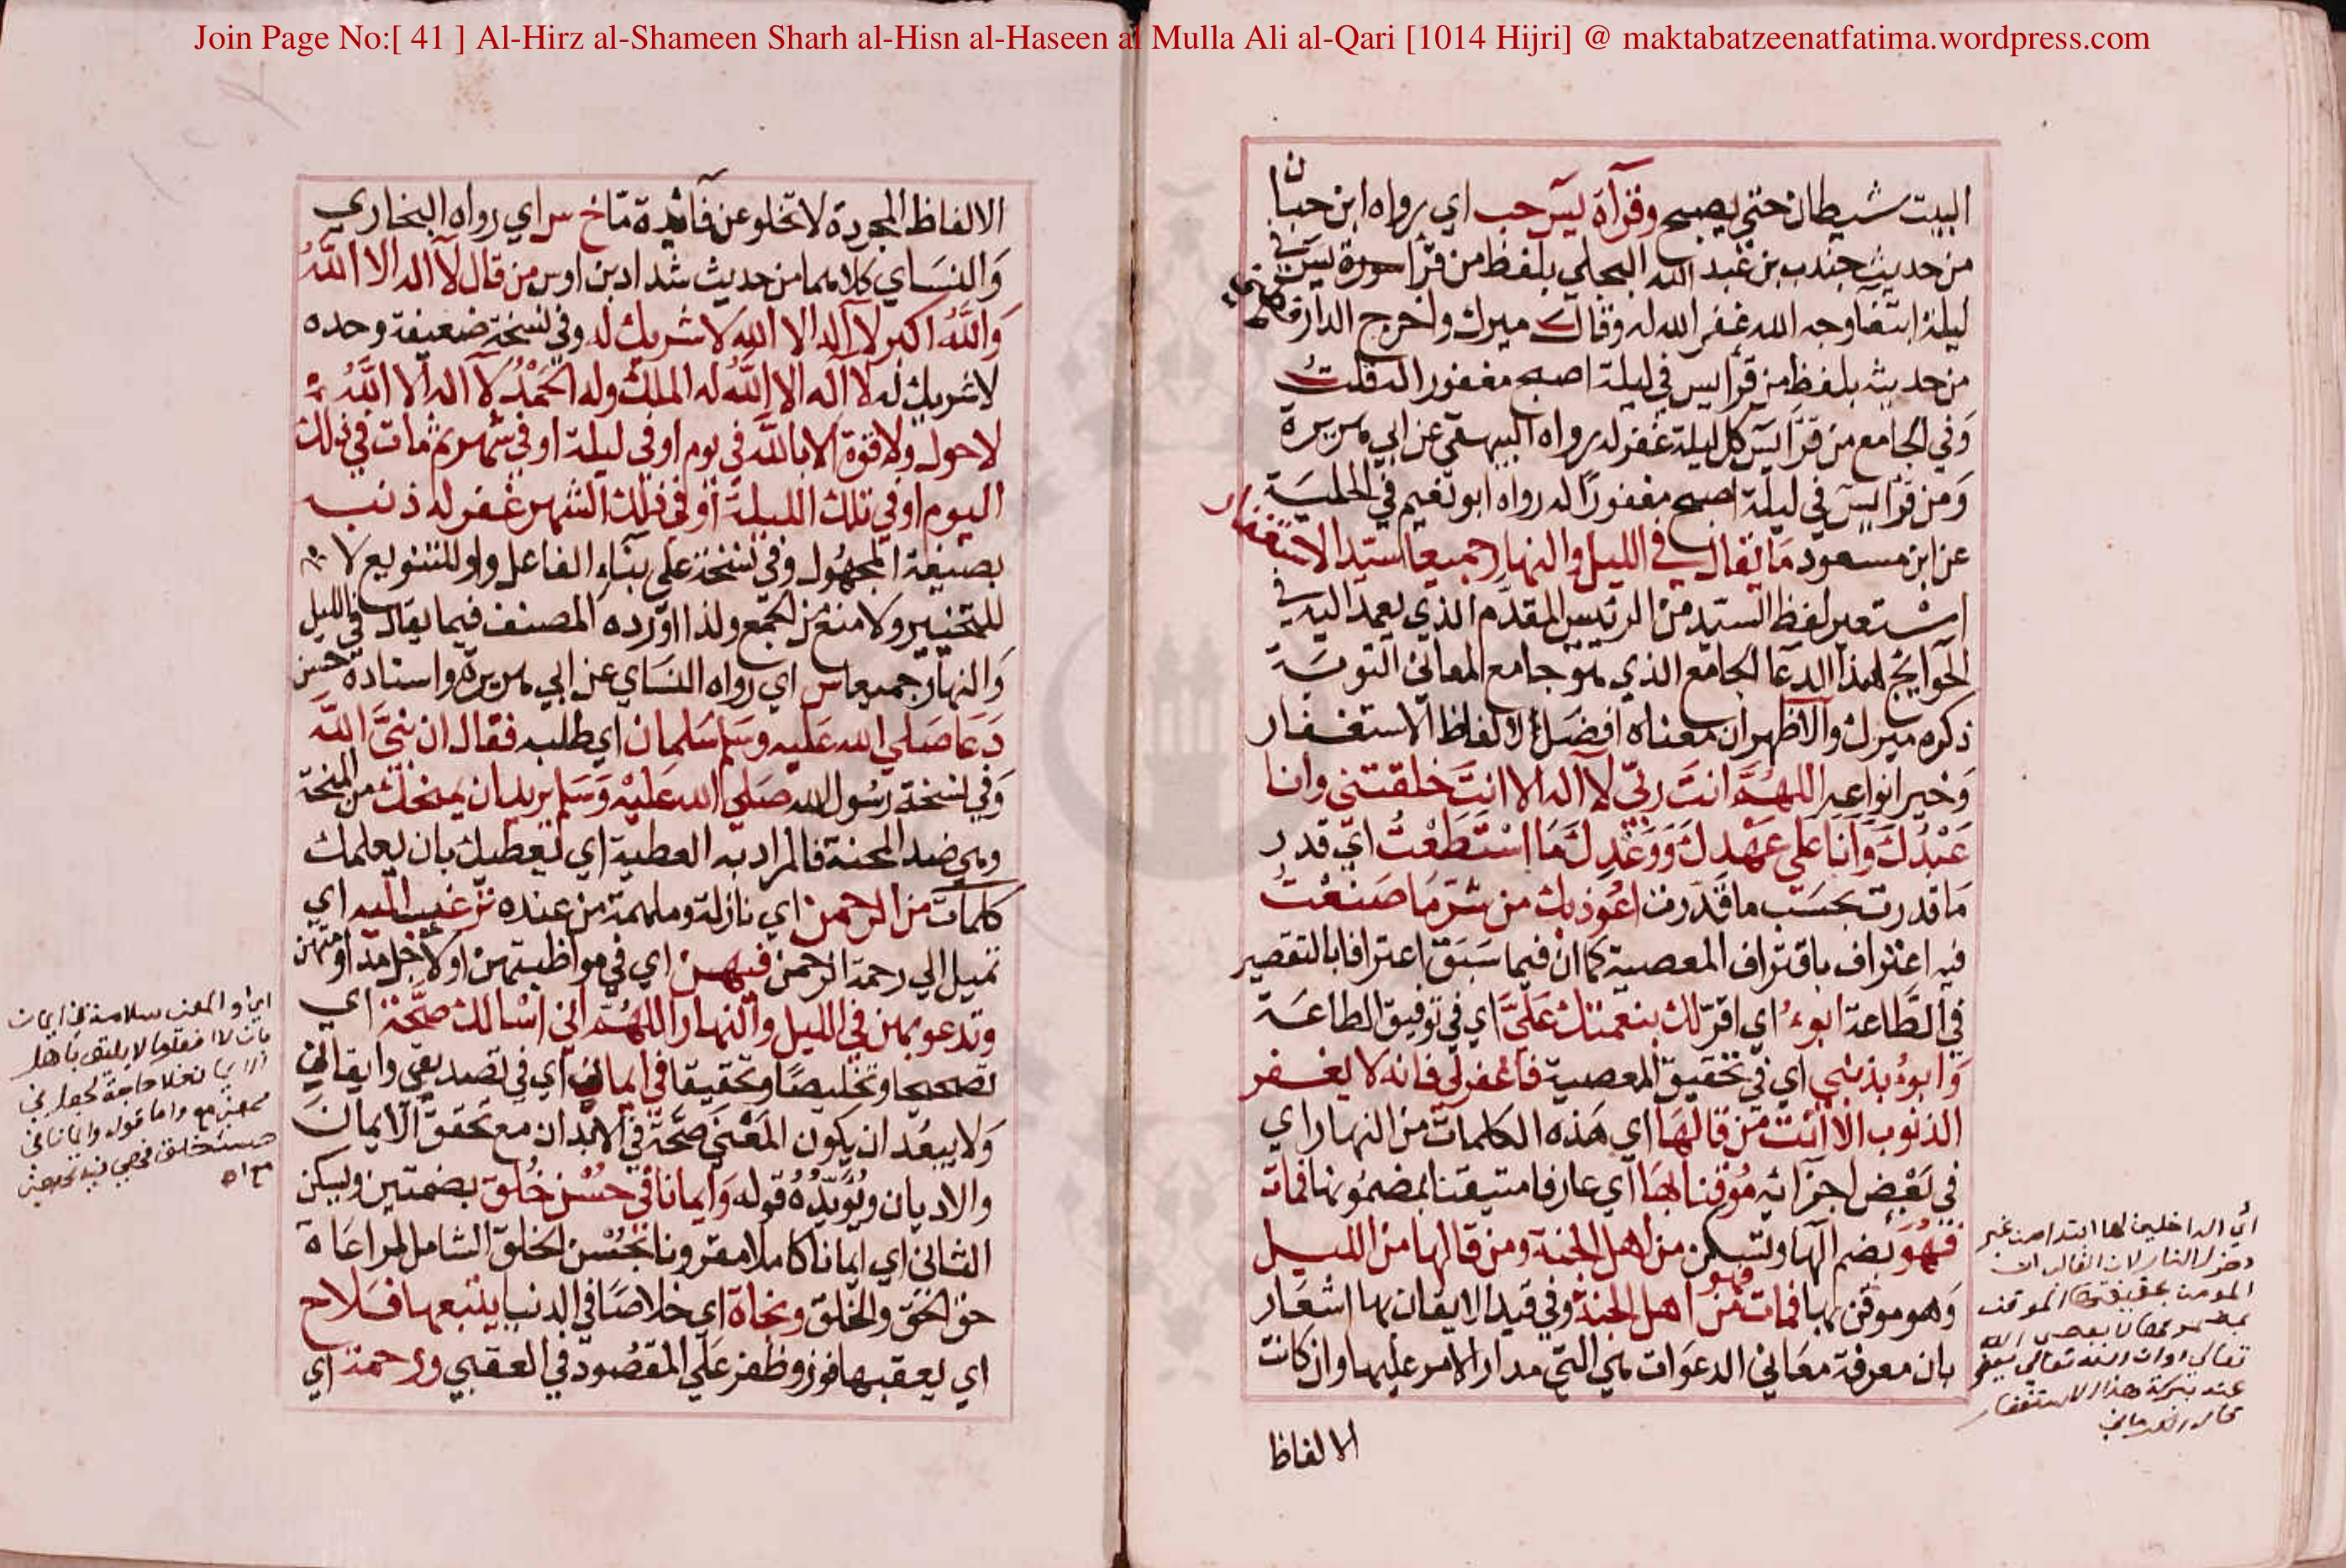 Join Page No:[ 41 ] Al-Hirz al-Shameen Sharh al-Hisn al-Haseen al Mulla Ali al-Qari [1014 Hijri] @ maktabatzeenatfatima.wordpress.com
البيت شيطان حتي يصبح وقرآة يس حب اي رواه ابن حبان
من حديث جندب بن عبد الله البجلي بلفظ من قرا سورة يس في
ليلة ابتغا وجه الله غفر الله له وقال ميرك واخرج الدارقطني
من حديثه بلفظ من قرأ يس في ليلة اصبح مغفورا له قلت
وَفي الجامع من قرَا يسَ كل ليلة غفر له رواه البيهقي عن ابي هريرة
وَمن قرَا يسَ في ليلة اصبح مغفورًا له رواه ابو نعيم في الحلية
عن ابن مسعود مَا يقال في الليل والنهار جميعا سيد الاستغفار
استعير لفظ السيد من الرئيس المقدَّم الذي يعمد اليه في
الحوايج لهذا الدعا الجامع الذي هو جامع المعاني التوبَة
ذكره ميرك والاظهر ان معناه افضَل الفاظ الاستغفار
وَخير انواعه اللهُمَّ انتَ ربّي لآ اله الا انتَ خلقتني وانا
عَبْدُكَ وَاَنا على عَهْدِكَ وَوَعْدِكَ مَا اسْتَطَعْتُ اي قدر
مَا قدرت بحسَب ما قدرت اعُوذ بك من شر مَا صَنعْتُ
فيه اعتراف باقتراف المعصية كما ان فيما سَبَق اعترافا بالتقصير
في الطَّاعة ابوءُ اي اقر لك بنعمتك عَليَّ اي في توفيق الطاعَة
وَابوءُ بذنبي اي في تحقيق المعصية فاغفر لي فانه لا يغفر
الذنوب الا انت مَن قالهَا اي هَذه الكلمات من النهار اي
في بَعْض اجزائه مُوقنا بهَا اي عارفا متيقنا بمضمُونها فمات
فهُوَ بضم الهَا وتسكن من اهل الجنة ومن قالها من الليل
وَهو موقن بها فمات فهو من اهل الجنة وفي قيد الايقان بها اشعَار
بان معرفة معَاني الدعوَات هي التي مدار الامر عليها وان كانت
الالفاظ
اي الداخلين لها ابتدا من غير
دخول النار لان الغالب ان
المومن بحقيقتها الموقن
تعالى او ان الله تعالى يعفو
عنه ببركة هذا الاستغفار
الالفاظ المجردة لا تخلو عن فائدة مّا خ س اي رواه البخاري
وَالنسَاي كلاهما من حديث شداد بن اوس من قال لآ اله الا اللهُ
وَاللهُ اكبر لا اله الا الله لا شريك له وفي نسخة ضعيفة وحده
لا شريك له لا اله الا الله له الملك وله الحَمْدُ لآ اله الا اللهُ
لا حول ولا قوة الا بالله في يوم او في ليلة او في شهر ثم مات في ذلك
اليوم او في تلك الليلة او في ذلك الشهر غفر له ذنبه
بصيغة المجهُول وفي نسخة على بنَاء الفاعل واو للتنويع لا
للتخيير ولا منع من الجمع ولذا اورده المصنف فيما يقال في الليل
وَالنهَار جميعا س اي رواه النسَاي عن ابي هريرة واسناده حسن
دَعَا صَلى الله عَليه وسَلم سَلمان اي طلبه فقال ان نبيَّ الله
وَفي نسخة رسُول الله صَلى الله عَليْه وَسَلم يريد ان يمنحك من المنحة
وهي ضد المحنة فالمراد به العطية اي يعطيك بان يعلمك
كلمات من الرحمن اي نازلة وملهمة من عنده ترغب اليه اي
تميل الي رحمة الرحمن فيهن اي في مواظبتهن او لاجلهن
وتدعو بهن في الليل والنهار اللهُم اني اسْالك صحَّة اي
تصحيحا وتخليصًا وتحقيقا في ايماني اي في تصديقي وايقاني
وَلا يبعُد ان يكون المَعْني صحَّة في الابدان مع تحقق الايمان
والاديان ويُؤيّدُهُ قوله وَايمانا في حُسْن خُلق بضمتين ويسكن
الثاني اي ايمانا كاملا مقرونا بحُسْن الخلق الشامل لمراعَاة
حق الحق والخلق ونجاة اي خلاصًا في الدنيا يتبعها فَلاح
اي يعقبها فوز وظفر علَي المقصُود في العقبي ورحمة اي